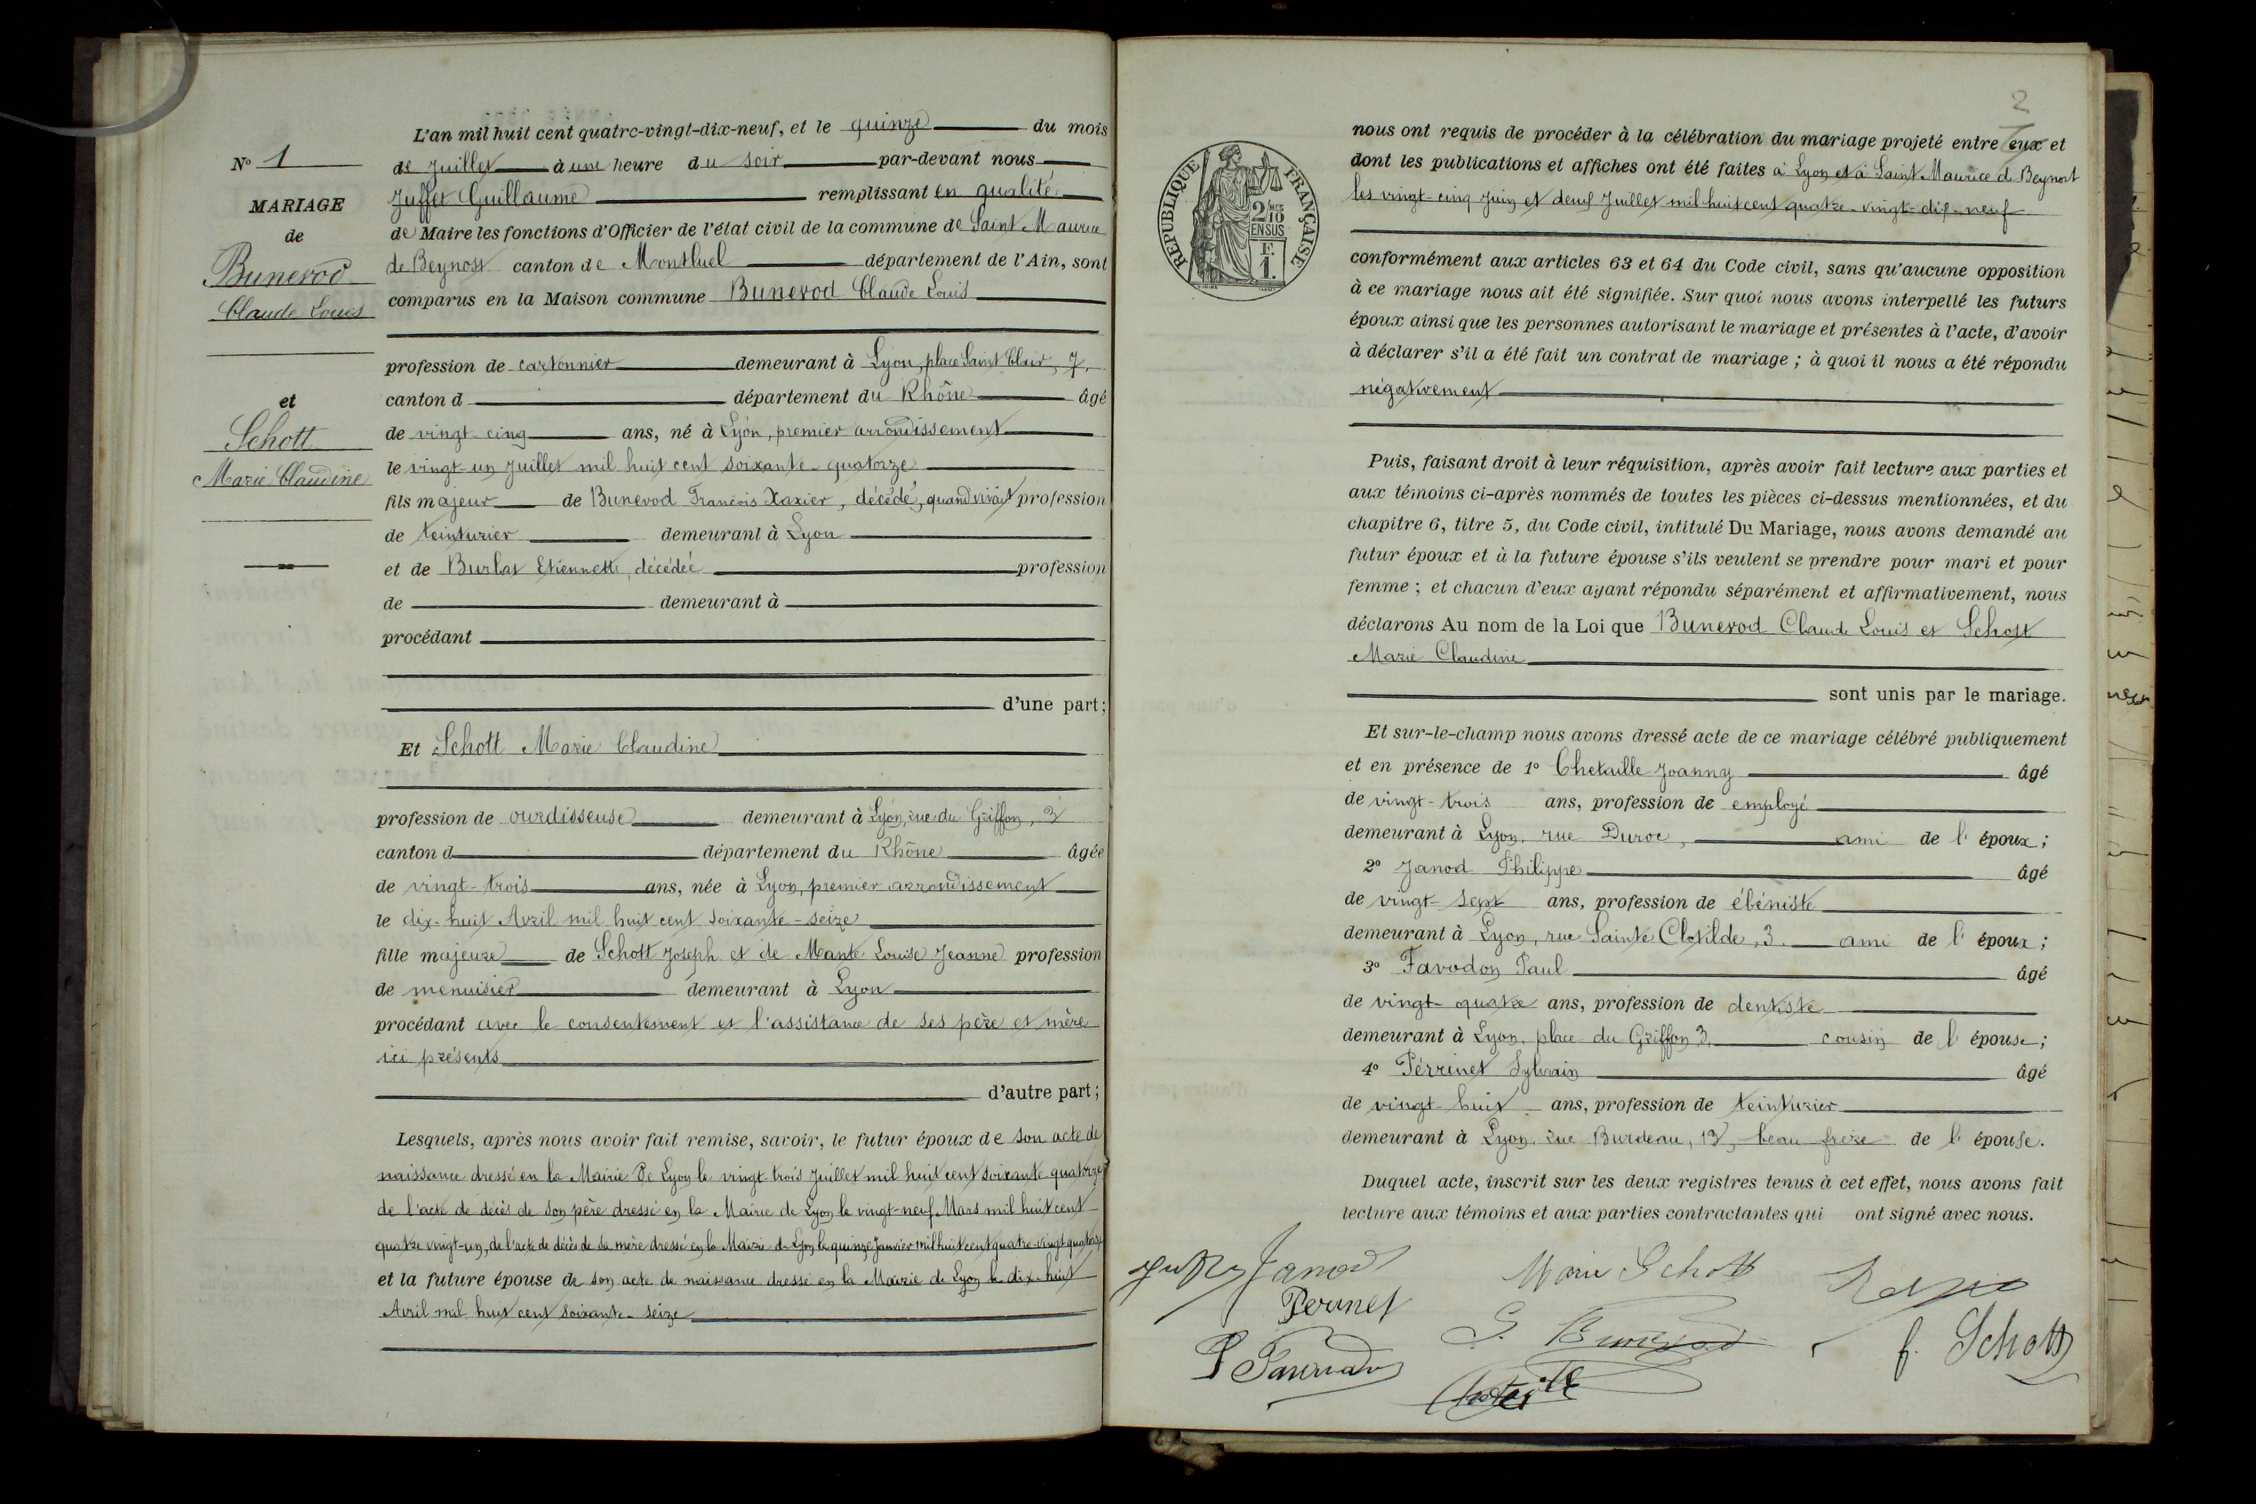 N° 1
MARIAGE
de
Bunevod
Claude Louis
et
Schott
Marie Claudine
L'an mil huit cent quatre-vingt-dix-neuf, et le quinze du mois
de Juillet à une heure du soir par-devant nous
Juffet Guillaume remplissant en qualité
de Maire les fonctions d'Officier de l'état civil de la commune de Saint Maurice
de Beynost canton de Montluel département de l'Ain, sont
comparus en la Maison commune Bunevod Claude Louis
profession de cartonnier demeurant à Lyon, place Saint Clair, 7,
canton d département du Rhône âgé
de vingt-cinq ans, né à Lyon, premier arrondissement
le vingt-un Juillet mil huit cent soixante-quatorze
fils majeur de Bunevod François Xavier, décédé, quand vivait profession
de teinturier demeurant à Lyon
et de Burlat Etiennette, décédée profession
de demeurant à
procédant
d'une part;
Et Schott Marie Claudine
profession de ourdisseuse demeurant à Lyon, rue du Griffon, 3
canton d département du Rhône âgée
de vingt-trois ans, née à Lyon, premier arrondissement
le dix-huit Avril mil huit cent soixante-seize
fille majeure de Schott Joseph et de Mante Louise Jeanne profession
de menuisier demeurant à Lyon
procédant avec le consentement et l'assistance de ses père et mère
ici présents
d'autre part;
Lesquels, après nous avoir fait remise, savoir, le futur époux de son acte de
naissance dressé en la Mairie de Lyon le vingt trois Juillet mil huit cent soixante-quatorze
de l'acte de décès de son père dressé en la Mairie de Lyon le vingt-neuf Mars mil huit cent
quatre vingt-un, de l'acte de décès de sa mère dressé en la Mairie de Lyon le quinze Janvier mil huit cent quatre-vingt quatorze
et la future épouse de son acte de naissance dressé en la Mairie de Lyon le dix-huit
Avril mil huit cent soixante-seize
2
RÉPUBLIQUE FRANÇAISE
2/10
EN SUS
F.
1.
nous ont requis de procéder à la célébration du mariage projeté entre eux et
dont les publications et affiches ont été faites à Lyon et à Saint Maurice de Beynost
les vingt-cinq Juin et deux Juillet mil huit cent quatre-vingt-dix-neuf
conformément aux articles 63 et 64 du Code civil, sans qu'aucune opposition
à ce mariage nous ait été signifiée. Sur quoi nous avons interpellé les futurs
époux ainsi que les personnes autorisant le mariage et présentes à l'acte, d'avoir
à déclarer s'il a été fait un contrat de mariage; à quoi il nous a été répondu
négativement
Puis, faisant droit à leur réquisition, après avoir fait lecture aux parties et
aux témoins ci-après nommés de toutes les pièces ci-dessus mentionnées, et du
chapitre 6, titre 5, du Code civil, intitulé Du Mariage, nous avons demandé au
futur époux et à la future épouse s'ils veulent se prendre pour mari et pour
femme; et chacun d'eux ayant répondu séparément et affirmativement, nous
déclarons Au nom de la Loi que Bunevod Claude Louis et Schott
Marie Claudine
sont unis par le mariage.
Et sur-le-champ nous avons dressé acte de ce mariage célébré publiquement
et en présence de 1° Chetaille Joanny âgé
de vingt-trois ans, profession de employé
demeurant à Lyon, rue Duroc, ami de l'époux;
2° Janod Philippe âgé
de vingt-sept ans, profession de ébéniste
demeurant à Lyon, rue Sainte Clotilde, 3. ami de l'époux;
3° Favodon Paul âgé
de vingt-quatre ans, profession de dentiste
demeurant à Lyon, place du Griffon 3, cousin de l'épouse;
4° Pérrinet Sylvain âgé
de vingt-huit ans, profession de teinturier
demeurant à Lyon, rue Burdeau, 13, beau frère de l'épouse.
Duquel acte, inscrit sur les deux registres tenus à cet effet, nous avons fait
lecture aux témoins et aux parties contractantes qui ont signé avec nous.
Janod Marie Schott
Perinet
Bunevod J. Schott
Chetaille